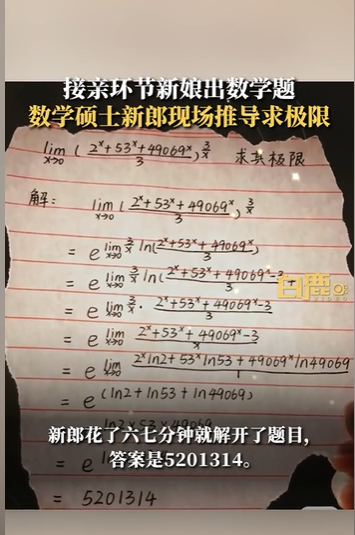 接亲环节新娘出数学题
数学硕士新郎现场推导求极限
lim x→0 (2^x+53^x+49069^x / 3)^(3/x) 求其极限
解: lim x→0 (2^x+53^x+49069^x / 3)^(3/x)
= e^(lim x→0 3/x ln(2^x+53^x+49069^x / 3))
= e^(lim x→0 3/x ln(2^x+53^x+49069^x-3 / 3
白鹿
VIDEO
= e^(lim x→0 3/x · 2^x+53^x+49069^x-3 / 3)
= e^(lim x→0 2^x+53^x+49069^x-3 / x)
= e^(lim x→0 2^x ln2+53^x ln53+49069^x ln49069 / 1)
= e^(ln2+ln53+ln49069)
新郎花了六七分钟就解开了题目,
答案是5201314。
= 5201314